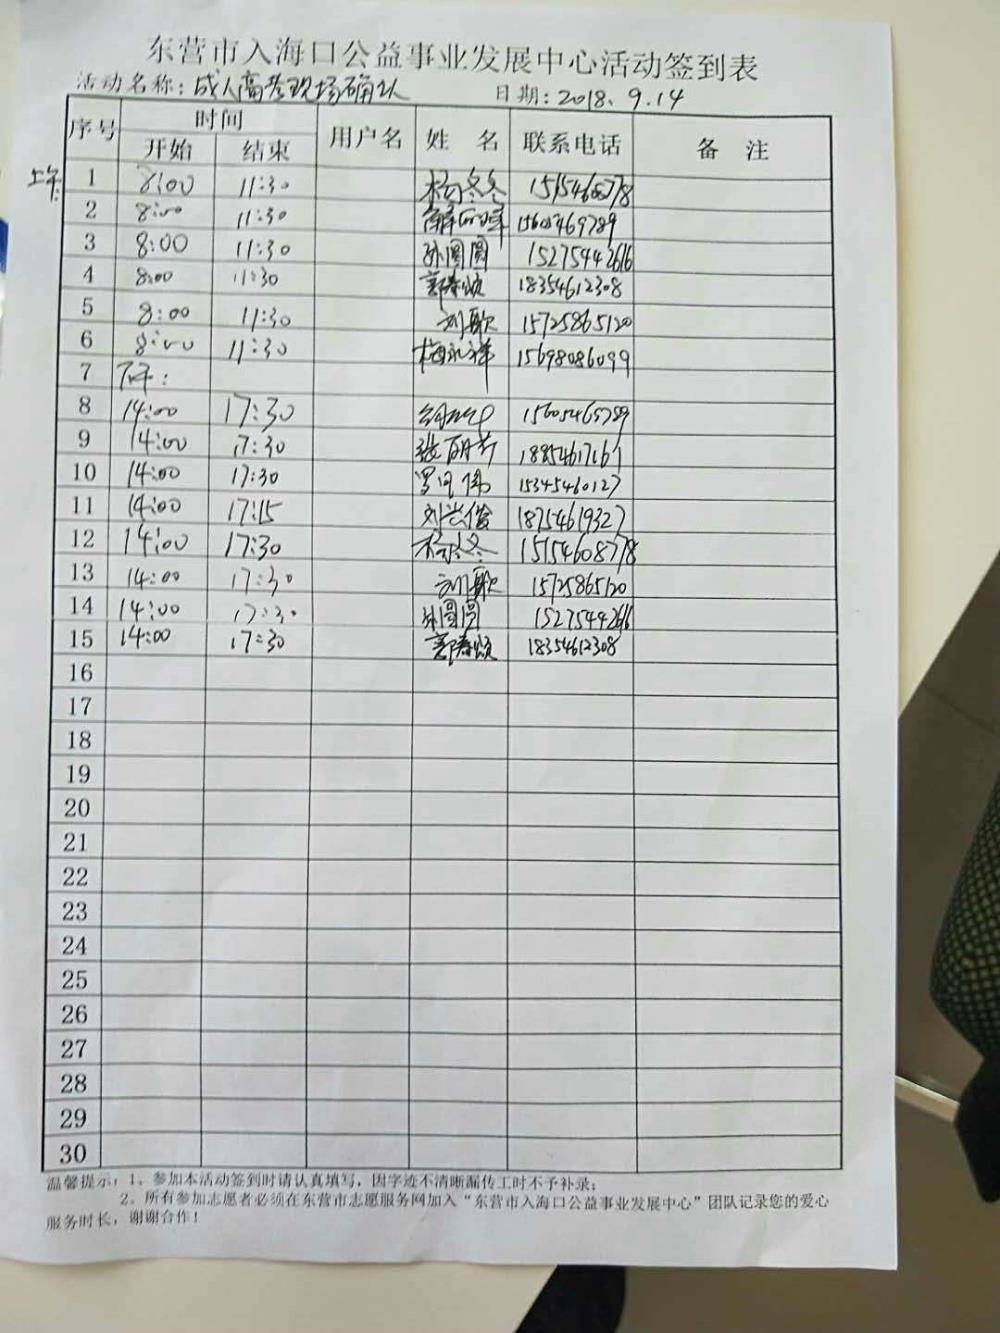 东营市入海口公益事业发展中心活动签到表
活动名称：成人高考现场确认 日期：2018.9.14
序号 时间 用户名 姓 名 联系电话 备 注
开始 结束
上午：
1 8:00 11:30 杨冬冬 15154608778
2 8:00 11:30 15605469789
3 8:00 11:30 孙圆圆 15275442616
4 8:00 11:30 郭春颂 18354612308
5 8:00 11:30 刘歌 15725865120
6 8:00 11:30 梅永祥 15698086099
7 下午：
8 14:00 17:30 15605469789
9 14:00 17:30 张 18854617161
10 14:00 17:30 15345460127
11 14:00 17:15 刘兴俊 18754619327
12 14:00 17:30 杨冬冬 15154608778
13 14:00 17:30 刘歌 15725865120
14 14:00 17:30 孙圆圆 15275442616
15 14:00 17:30 郭春颂 18354612308
16
17
18
19
20
21
22
23
24
25
26
27
28
29
30
温馨提示：1、参加本活动签到时请认真填写，因字迹不清晰漏传工时不予补录；
2、所有参加志愿者必须在东营市志愿服务网加入“东营市入海口公益事业发展中心”团队记录您的爱心
服务时长，谢谢合作！